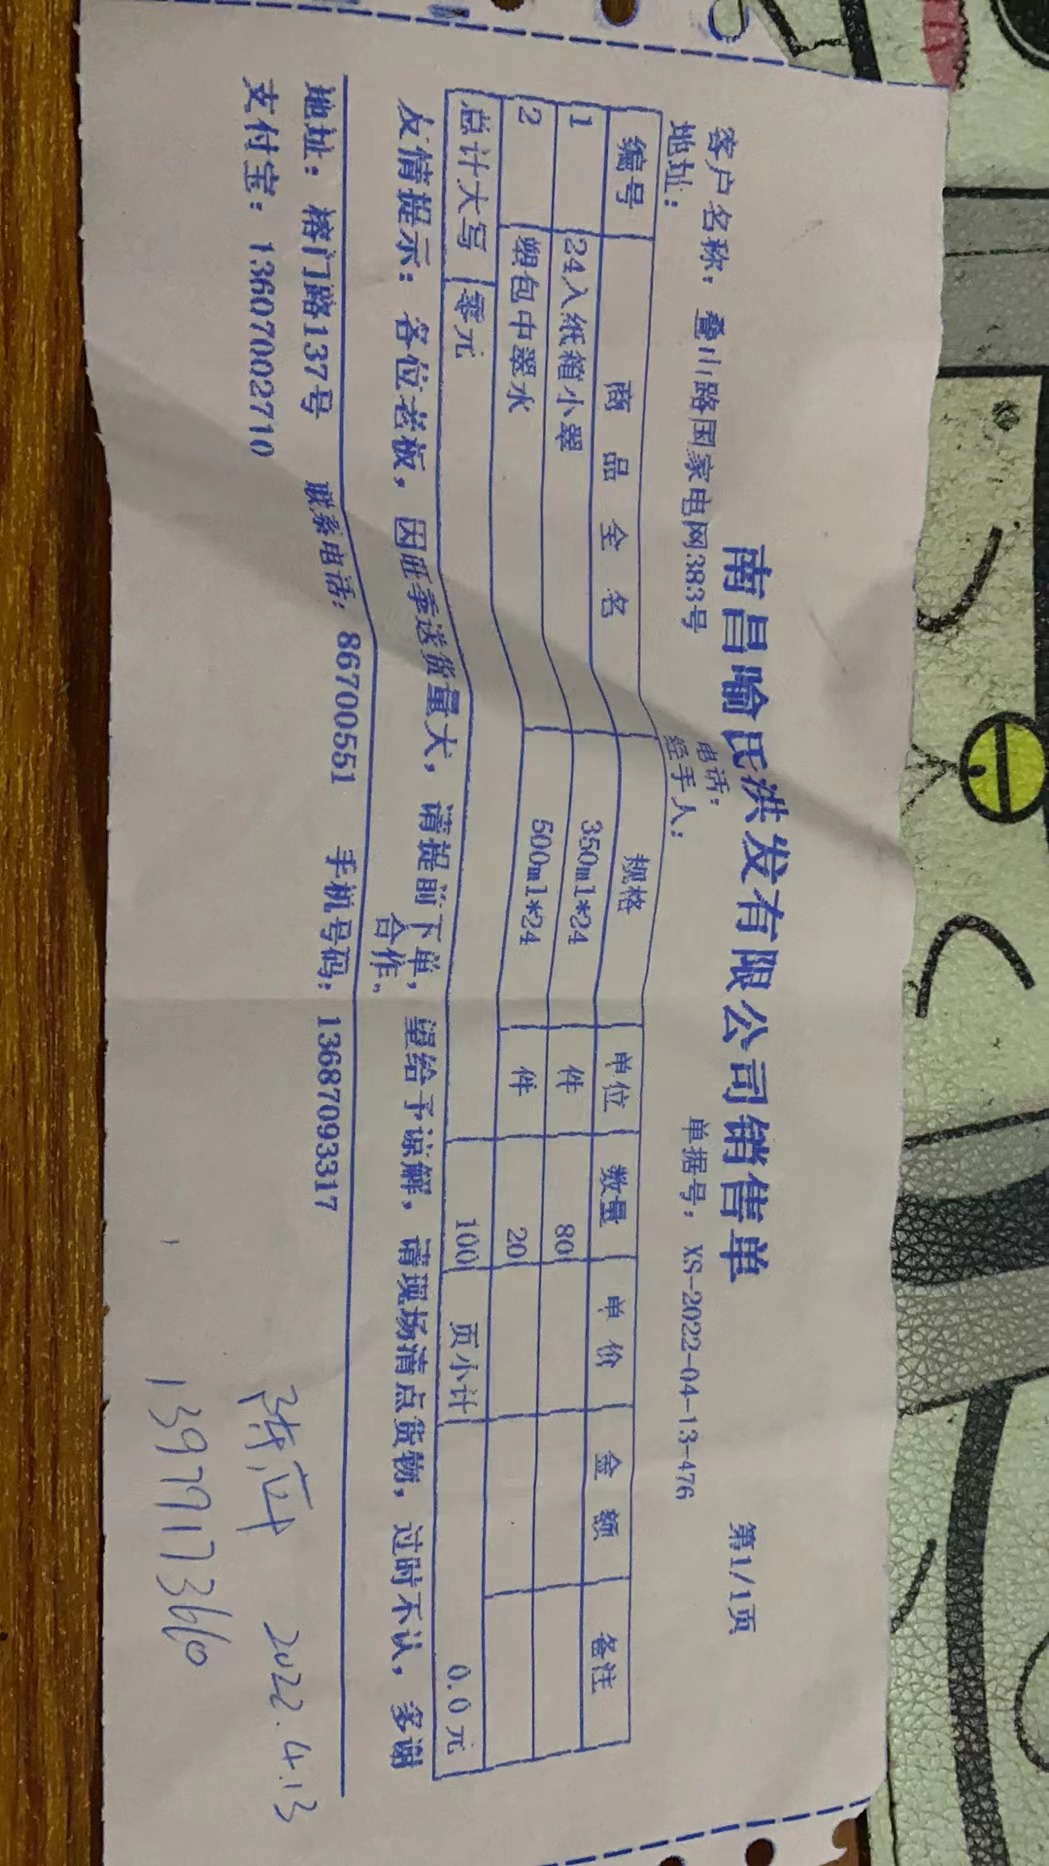 南昌喻氏洪发有限公司销售单
第1/1页
客户名称：叠山路国家电网383号 电话： 单据号：XS-2022-04-13-476
地址： 经手人：
编号 商品全名 规格 单位 数量 单价 金额 备注
1 24入纸箱小翠 350ml*24 件 80
2 塑包中翠水 500ml*24 件 20
总计大写 零元 100 页小计 0.0元
友情提示：各位老板，因旺季送货量大，请提前下单，望给予谅解，请现场清点货物，过时不认，多谢
合作。
地址：榕门路137号 联系电话：86700551 手机号码：13687093317
支付宝：13607002710
2022.4.13